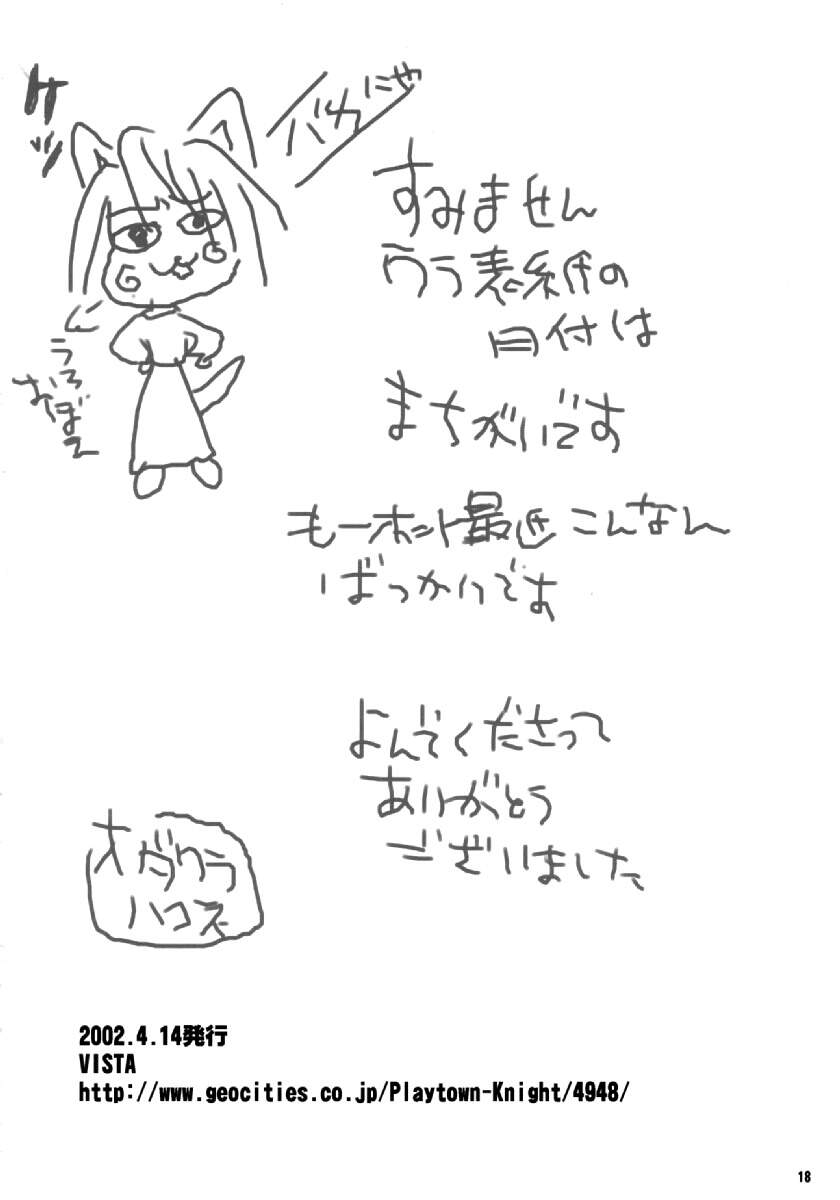 ケッ
バカにゃ
うろ
おぼえ
すみません
ウラ表紙の
日付は
まちがいです
もーホント最近こんなん
ばっかりです
よんでくださって
ありがとう
ございました
オダワラ
ハコネ
2002.4.14発行
VISTA
http://www.geocities.co.jp/Playtown-Knight/4948/
18